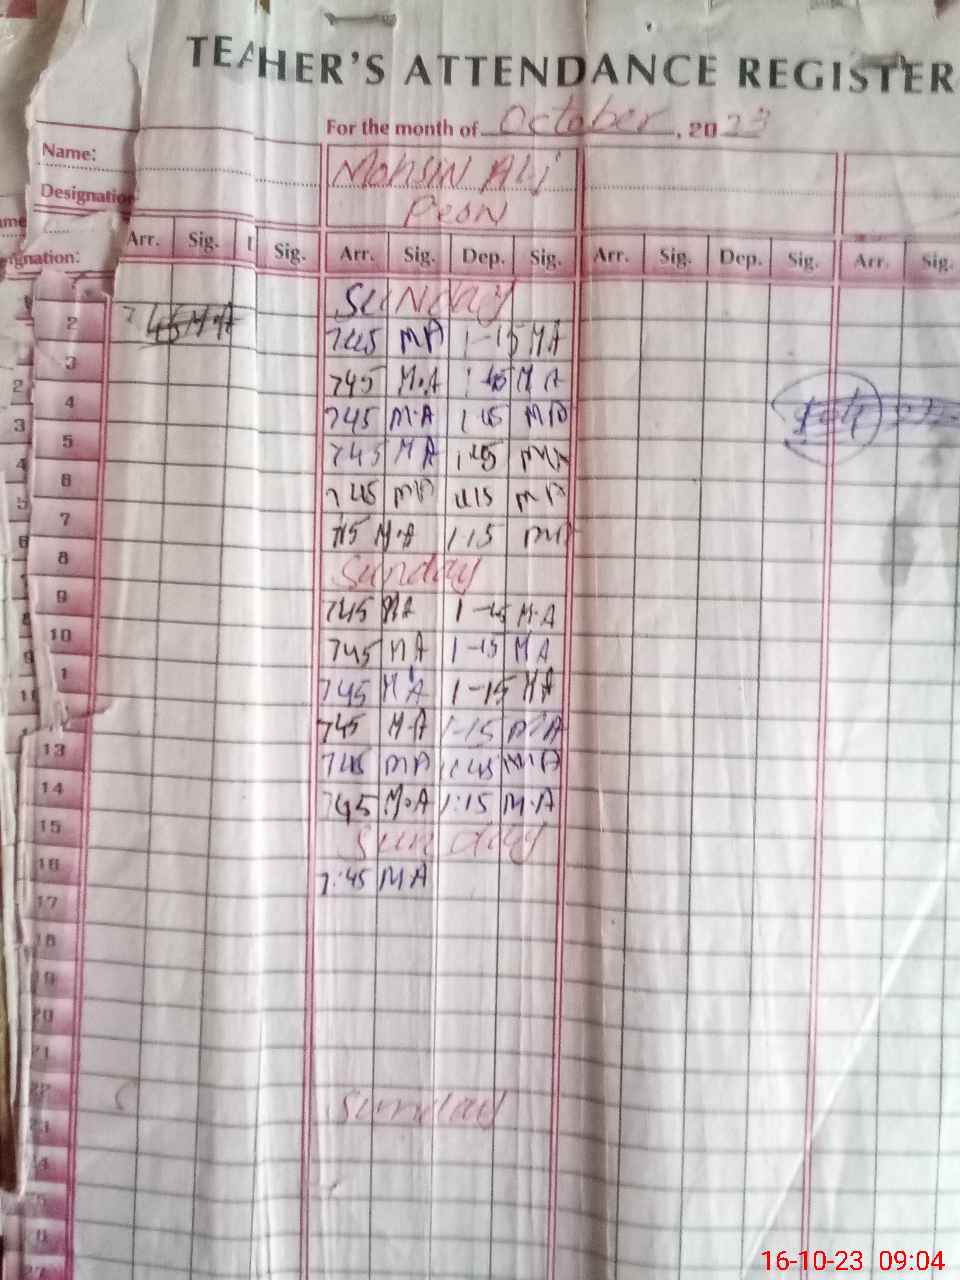 TEACHER'S ATTENDANCE REGISTER
For the month of October, 2023
Name: Mohsin Ali
Designation: Peon
Arr. Sig. Sig. Arr. Sig. Dep. Sig. Arr. Sig. Dep. Sig. Arr. Sig.
gnation:
Sunday
2 745 M.A 745 MA 1-15 MA
3 745 M.A 1 45 M A
4 745 M.A 1 45 MA
5 745 MA 1 45 MA
6 745 MA 1 15 MA
7 745 M.A 1.15 MA
8 Sunday
9 745 MA 1-15 M.A
10 745 MA 1-15 MA
1 745 MA 1-15 MA
745 M.A 1-15 MA
13 745 MA 1:45 M.A
14 745 M.A 1:15 M.A
15 Sunday
16 7:45 MA
17
18
19
20
21
22 Sunday
23
24
16-10-23 09:04